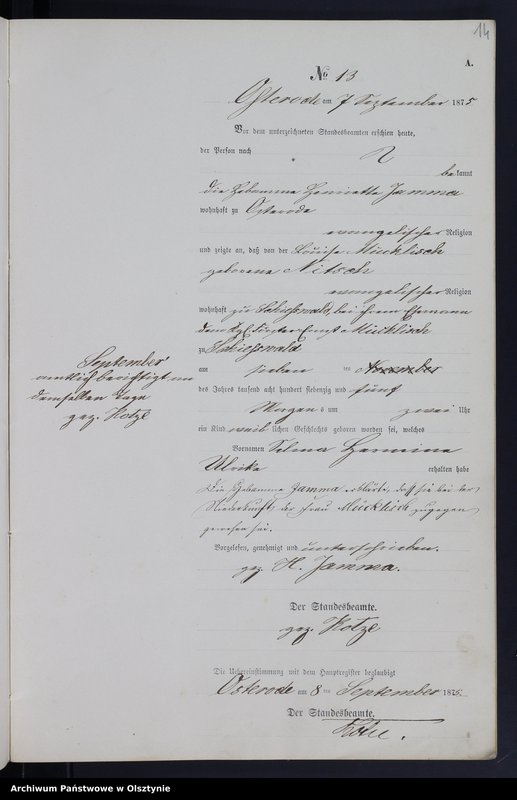 14
A.
№ 13
Osterode am 7 September 1875
Vor dem unterzeichneten Standesbeamten erschien heute,
der Person nach
bekannt
die Hebamme Henriette Jamma
wohnhaft zu Osterode
evangelischer Religion
und zeigte an, daß von der Louise Mücklisch
geborene Nitsch
evangelischer Religion
wohnhaft zu Schießwald, bei ihrem Ehemann
dem Kgl. Förster Ernst Mücklisch
zu Schießwald
am sieben ten November
des Jahres tausend acht hundert siebenzig und fünf
Morgens um zwei Uhr
ein Kind weiblichen Geschlechts geboren worden sei, welches
Vornamen Selma Hermine
Ulrike erhalten habe
Die Hebamme Jamma erklärte, daß sie bei der
Niederkunft der Frau Mücklisch zugegen
gewesen sei.
Vorgelesen, genehmigt und unterschrieben.
gez. H. Jamma.
Der Standesbeamte.
gez. Kotze
September
amtlich berichtigt am
demselben Tage
gez. Kotze
Die Uebereinstimmung mit dem Hauptregister beglaubigt
Osterode am 8 ten September 1875.
Der Standesbeamte.
Kotze.
Archiwum Państwowe w Olsztynie